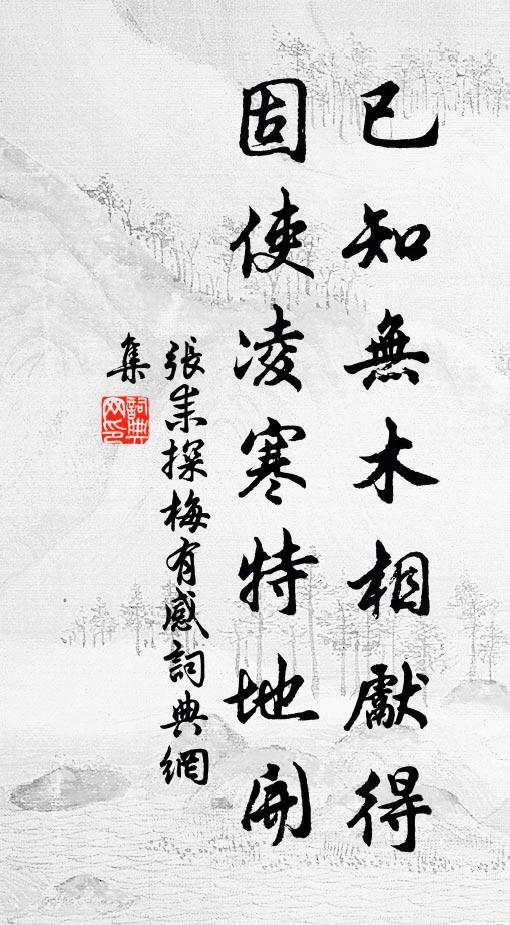 已知無木相獻得
固使凌寒特地開
張耒探梅有感詞典網
集
詞典網印